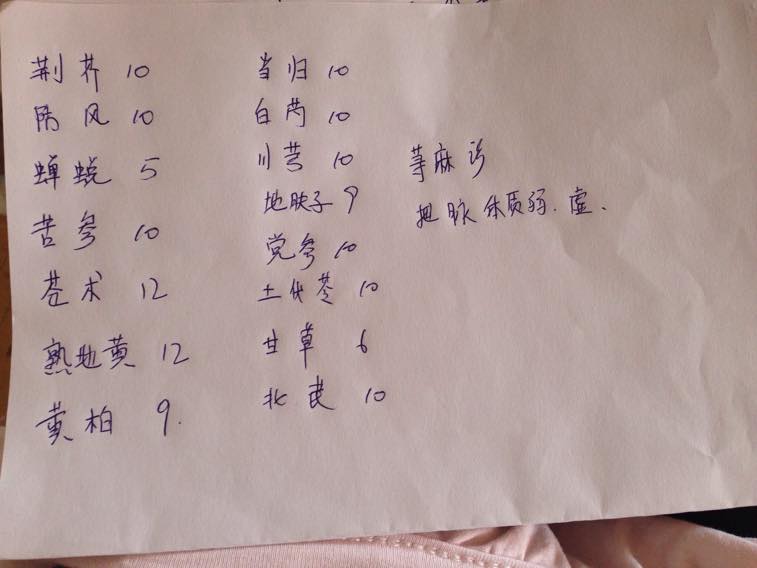 荆芥 10
防风 10
蝉蜕 5
苦参 10
苍术 12
熟地黄 12
黄柏 9.
当归 10
白芍 10
川芎 10
地肤子 9
党参 10
土伏苓 10
甘草 6
北芪 10
荨麻疹
把脉体质弱.虚.